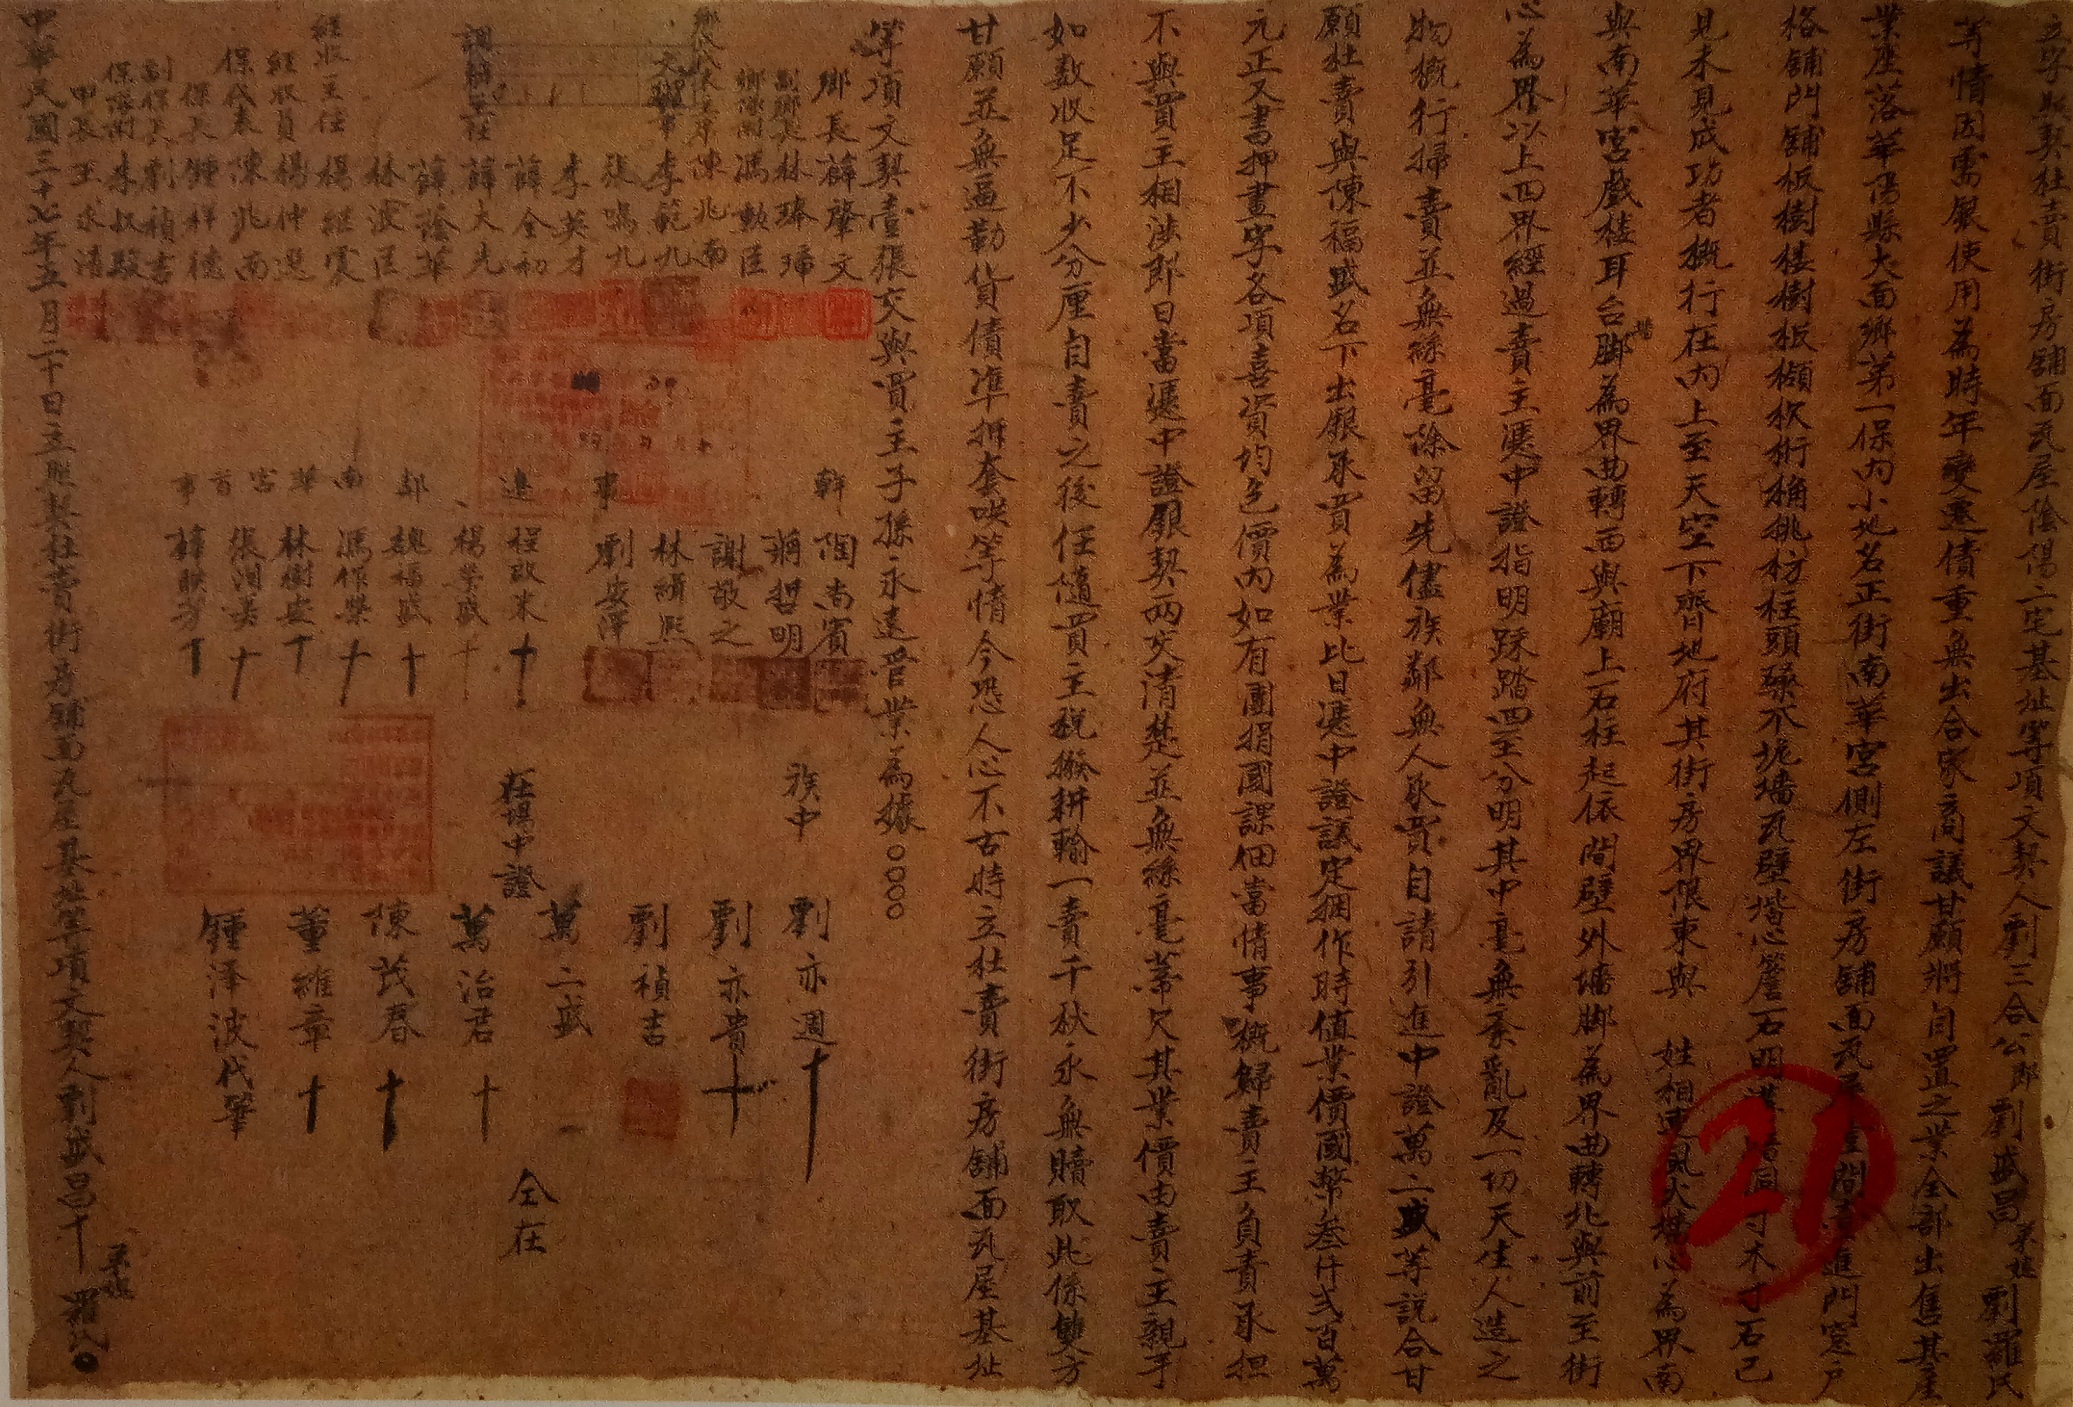 立字照契杜賣街房舖面瓦屋陰陽二宅基址等項文契人劉三合公郎劉盛昌承媳劉羅氏
等情因需銀使用為時年變遷債重無出合家商議甘願將自置之業全部出售其屋
業座落華陽縣大面鄉第一保內小地名正街南華宮側左街房舖面瓦屋 間 進門窓戶
格舖門舖板樹樓樹板 桷挑枋柱頭 不 墻瓦壁堦心簷石明 寸木寸石已
見未見成功者概行在內上至天空下齊地府其街房界限東與 姓相連風火墻心為界南
與南華宮戲樓耳台墻脚為界曲轉西與廟上石柱起依間壁外墻脚為界曲轉北與前至街
心為界以上四界經過賣主憑中證指明踩踏四至分明其中毫無紊亂及一切天生人造之
物概行掃賣並無絲毫除留先儘族鄰無人承買自請引進中證萬二盛等說合甘
願杜賣與陳福盛名下出銀承買為業比日憑中證議定捆作時值業價國幣叁仟弍百萬
元正又書押畫字各項喜資均包價內如有團捐國課佃當情事概歸賣主負責承担
不與買主相涉即日當憑中證銀契兩交清楚並無絲毫蒂欠其業價由賣主親手
如数收足不少分厘自賣之後任隨買主稅撥耕輸一賣千秋永無贖取此係雙方
甘願並無逼勒貨債準折套哄等情今恐人心不古特立杜賣街房舖面瓦屋基址
等項文契壹張交與買主子孫永遠管業為據○○○○
鄉長 薛肇文
副鄉長 林琫珊
鄉隊附 馮勳臣
鄉民代表主席 陳兆南
文化幹事 李範九
張鳴九
李英才
薛全初
調解主任 薛大先
薛蓥華
林波臣
經收主任 楊繼寞
經收員 楊仲選
保代表 陳兆南
保長 鍾祥德
副保長 劉禎吉
保隊附 李叔殿
甲長 王永清
幹事
陶尚賓
蔣哲明
謝敬之
林緝熙
劉安澤
連
鄰
程啟米 十
楊榮盛 十
魏福盛 十
南華宮首事
馮作榮 十
林樹安 十
張潤美 十
薛畎芳 十
族中
劉亦週 十
劉亦貴 十
劉禎吉
在場中證
萬二盛
萬治君 十
陳茂春 十
董維章 十
鍾澤波代筆
仝在
中華民國三十七年五月二十日立照契杜賣街房舖面瓦屋基址等項文契人劉盛昌十承媳羅氏
21